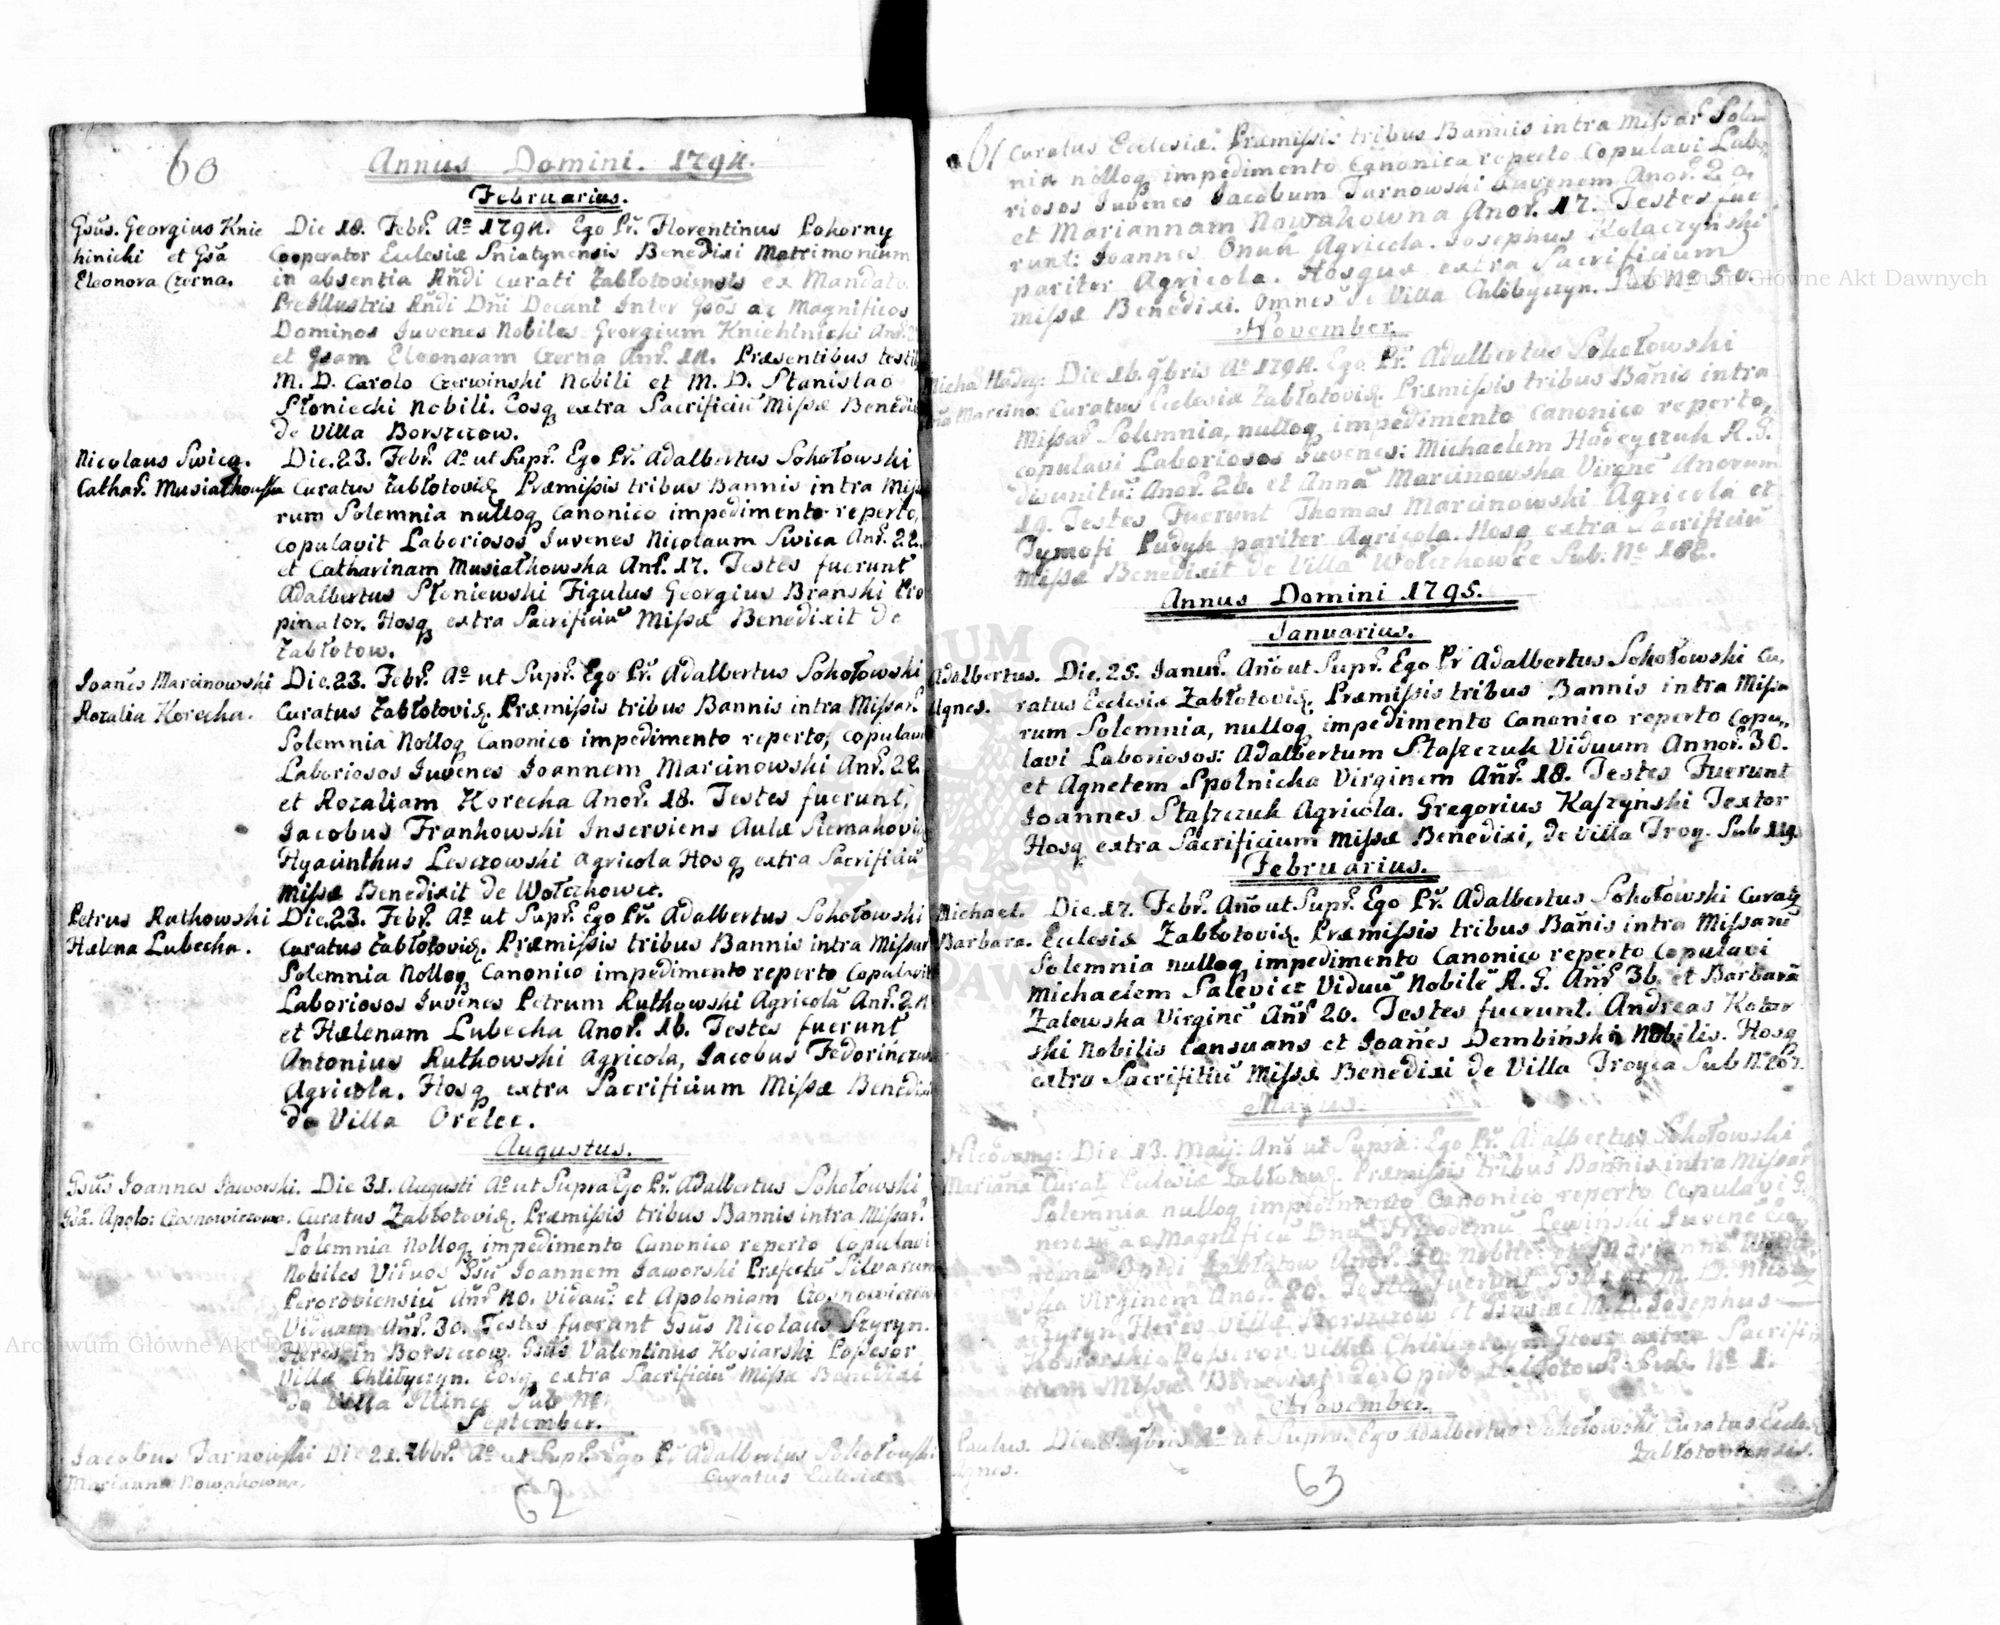 60
Annus Domini. 1794.
Februarius.
Gsūs. Georgius Knie
hinicki et Gsā
Eleonora Czerna.
Die 18. Febr. Aº 1794. Ego Pr. Florentinus Pokorny
Cooperator Ecclesiæ Sniatynensis Benedixi Matrimonium
in absentia Rñdi Curati Zabłotoviensis ex Mandato
Prellustris Rñdi Dñi Decani Inter Gsōs ac Magnificos
Dominos Iuvenes Nobiles Georgium Kniehinicki
et Gsam Eleonoram Czerna Anr. 14. Præsentibus
M. D. Carolo Czerwinski Nobili et M. D. Stanislao
Słoniecki Nobili. Eosq extra Sacrificiū Missæ
de Villa Borszczow.
Nicolaus Swica.
Cathar. Musiałkowska
Die. 23. Febr. Aº ut Supr. Ego Pr. Adalbertus Sokołowski
Curatus Zabłotovis. Præmissis tribus Bannis intra
rum Solemnia nulloq Canonico impedimento reperto,
copulavit Laboriosos Iuvenes Nicolaum Swica Anr. 22.
et Catharinam Musiałkowska Anr. 17. Testes fuerunt
Adalbertus Słoniewski Figulus Georgius Branski Pro
pinator. Hosq extra Sacrificiū Missæ Benedixit de
Zabłotow.
Ioanēs Marcinowski
Rozalia Korecka.
Die. 23. Febr. Aº ut Supr. Ego Pr. Adalbertus Sokołowski
Curatus Zabłotovis. Præmissis tribus Bannis intra Missar.
Solemnia Nolloq Canonico impedimento reperto, copulavi
Laboriosos Iuvenes Ioannem Marcinowski Anr. 22.
et Rozaliam Korecka Anor. 18. Testes fuerunt,
Iacobus Frankowski Inserviens Aulæ
Hyacinthus Lesczowski Agricola Hosq extra Sacrificiū
Missæ Benedixit de Wołczkowce.
Petrus Rutkowski
Hælena Lubecka.
Die. 23. Febr. Aº ut Supr. Ego Pr. Adalbertus Sokołowski
Curatus Zabłotovis. Præmissis tribus Bannis intra Missar
Solemnia Nolloq Canonico impedimento reperto Copulavit
Laboriosos Iuvenes Petrum Rutkowski Agricolā Anr. 24
et Hælenam Lubecka Anor. 16. Testes fuerunt
Antonius Rutkowski Agricola, Iacobus
Agricola. Hosq extra Sacrificium Missæ
de Villa Orelec.
Augustus.
Gsūs Ioannes Jaworski.
Gsā. Apolo:
Die 31. Augusti Aº ut Supra Ego Pr. Adalbertus Sokołowski
Curatus Zabłotovis. Præmissis tribus Bannis intra Missar.
Solemnia Nolloq impedimento Canonico reperto Copulavi
Nobiles Viduos Gsū Ioannem Jaworski Præfectū Silvarum
Anr. 40. et Apoloniam
Viduam Anr. 30. Testes fuerunt Gsūs Nicolaus Szyryn.
Heres in Borszczow. Gsūs Valentinus Kosiarski Possesor
Villæ Chlibyczyn. Eosq extra Sacrificiū Missæ Benedixi
de Villa Illince Sub Nº
September.
Jacobus Tarnowski
Marianna Nowakowna.
Die 21. 7bbr. Aº ut Supr. Ego Pr Adalbertus Sokołowski
Curatus Eclesiæ
62
61
Curatus Ecclesiæ. Præmissis tribus Bannis intra Missar Solem
nia nolloq impedimento Canonico reperto Copulavi Labo
riosos Iuvenes Jacobum Tarnowski Iuvenem Anor.
et Mariannam Nowakowna Anor. 17. Testes fue
runt: Ioannes Onuk Agricola. Iosephus Kolaczyński
pariter Agricola. Hosque extra Sacrificium
missæ Benedixi. Omnes de Villa Chlibyczyn. Sub Nº 50.
November
Die 16. 9bris Aº 1794. Ego Pr. Adalbertus Sokołowski
Curatus Ecclesiæ Zabłotovis. Præmissis tribus Banis intra
Missar Solemnia, nulloq impedimento Canonico reperto,
copulavi Laboriosos Iuvenes: Michaelem Hadeyczuk R. G.
Anor. 26. et Annā Marcinowska Virgnē Anorum
19. Testes Fuerunt Thomas Marcinowski Agricola et
Tymofi Pudyk pariter Agricola. Hosq extra Sacrificiū
Missæ Benedixit de Villa Wołczkowce Sub. Nº 182.
Annus Domini 1795.
Ianuarius.
Adalbertus.
Agnes.
Die. 25. Ianur. Anō ut Supr. Ego Pr Adalbertus Sokołowski Cu,
ratus Ecclesiæ Zabłotovis. Præmissis tribus Bannis intra Missa
rum Solemnia, nulloq impedimento Canonico reperto Copu,,
lavi Laboriosos: Adalbertum Staszczuk Viduum Annor. 30.
et Agnetem Spolnicka Virginem Añr. 18. Testes Fuerunt
Ioannes Staszczuk Agricola. Gregorius Kaszyński Textor
Hosq extra Sacrificium Missæ Benedixi, de Villa Troy. Sub 119.
Februarius.
Michael.
Barbara.
Die. 17. Febr. Anō ut Supr. Ego Pr. Adalbertus Sokołowski Curatq
Ecclesiæ Zabłotovis. Præmissis tribus Banis intra Missarū
Solemnia nulloq impedimento Canonico reperto Copulavi
Michaelem Salevicz Viduū Nobilē R. G. Añr. 36. et Barbarā
Zalewska Virginē Añr 26. Testes fuerunt. Andreas Kotar
ski Nobilis Censuans et Ioañes Dembiński Nobilis. Hosq
extra Sacrifitiū Missæ Benedixi de Villa Troyca Sub Nº 267.
Mayus.
Mariāna
Die 13. May: Anō ut Supra: Ego Pr. Adalbertus Sokołowski
Curat Eclesiæ Zabłotow. Præmissis tribus Bannis intra Missar
Solemnia nulloq impedimento Canonico reperto Copulavi
ac Magnificū Dnū Nicodemū Lewiński Iuvenē
Opidi Zabłotow Anor.
Virginem Anor. 20. Testes fuerunt
Szyryn Heres Villæ Borszczow et M. D. Iosephus
Kosiarski Possesor Villæ Chlibyczyn Hosq extra Sacrifi
cium Missæ Benedixi de Opido Zabłotow Sub. Nº 1.
November.
Paulus.
Agnes.
9bris Aº ut Supra. Ego Adalbertus Sokołowski Curatus Eccle
Zabłotoviensis.
63
Archiwum Główne Akt Dawnych
Archiwum Główne Akt Dawnych